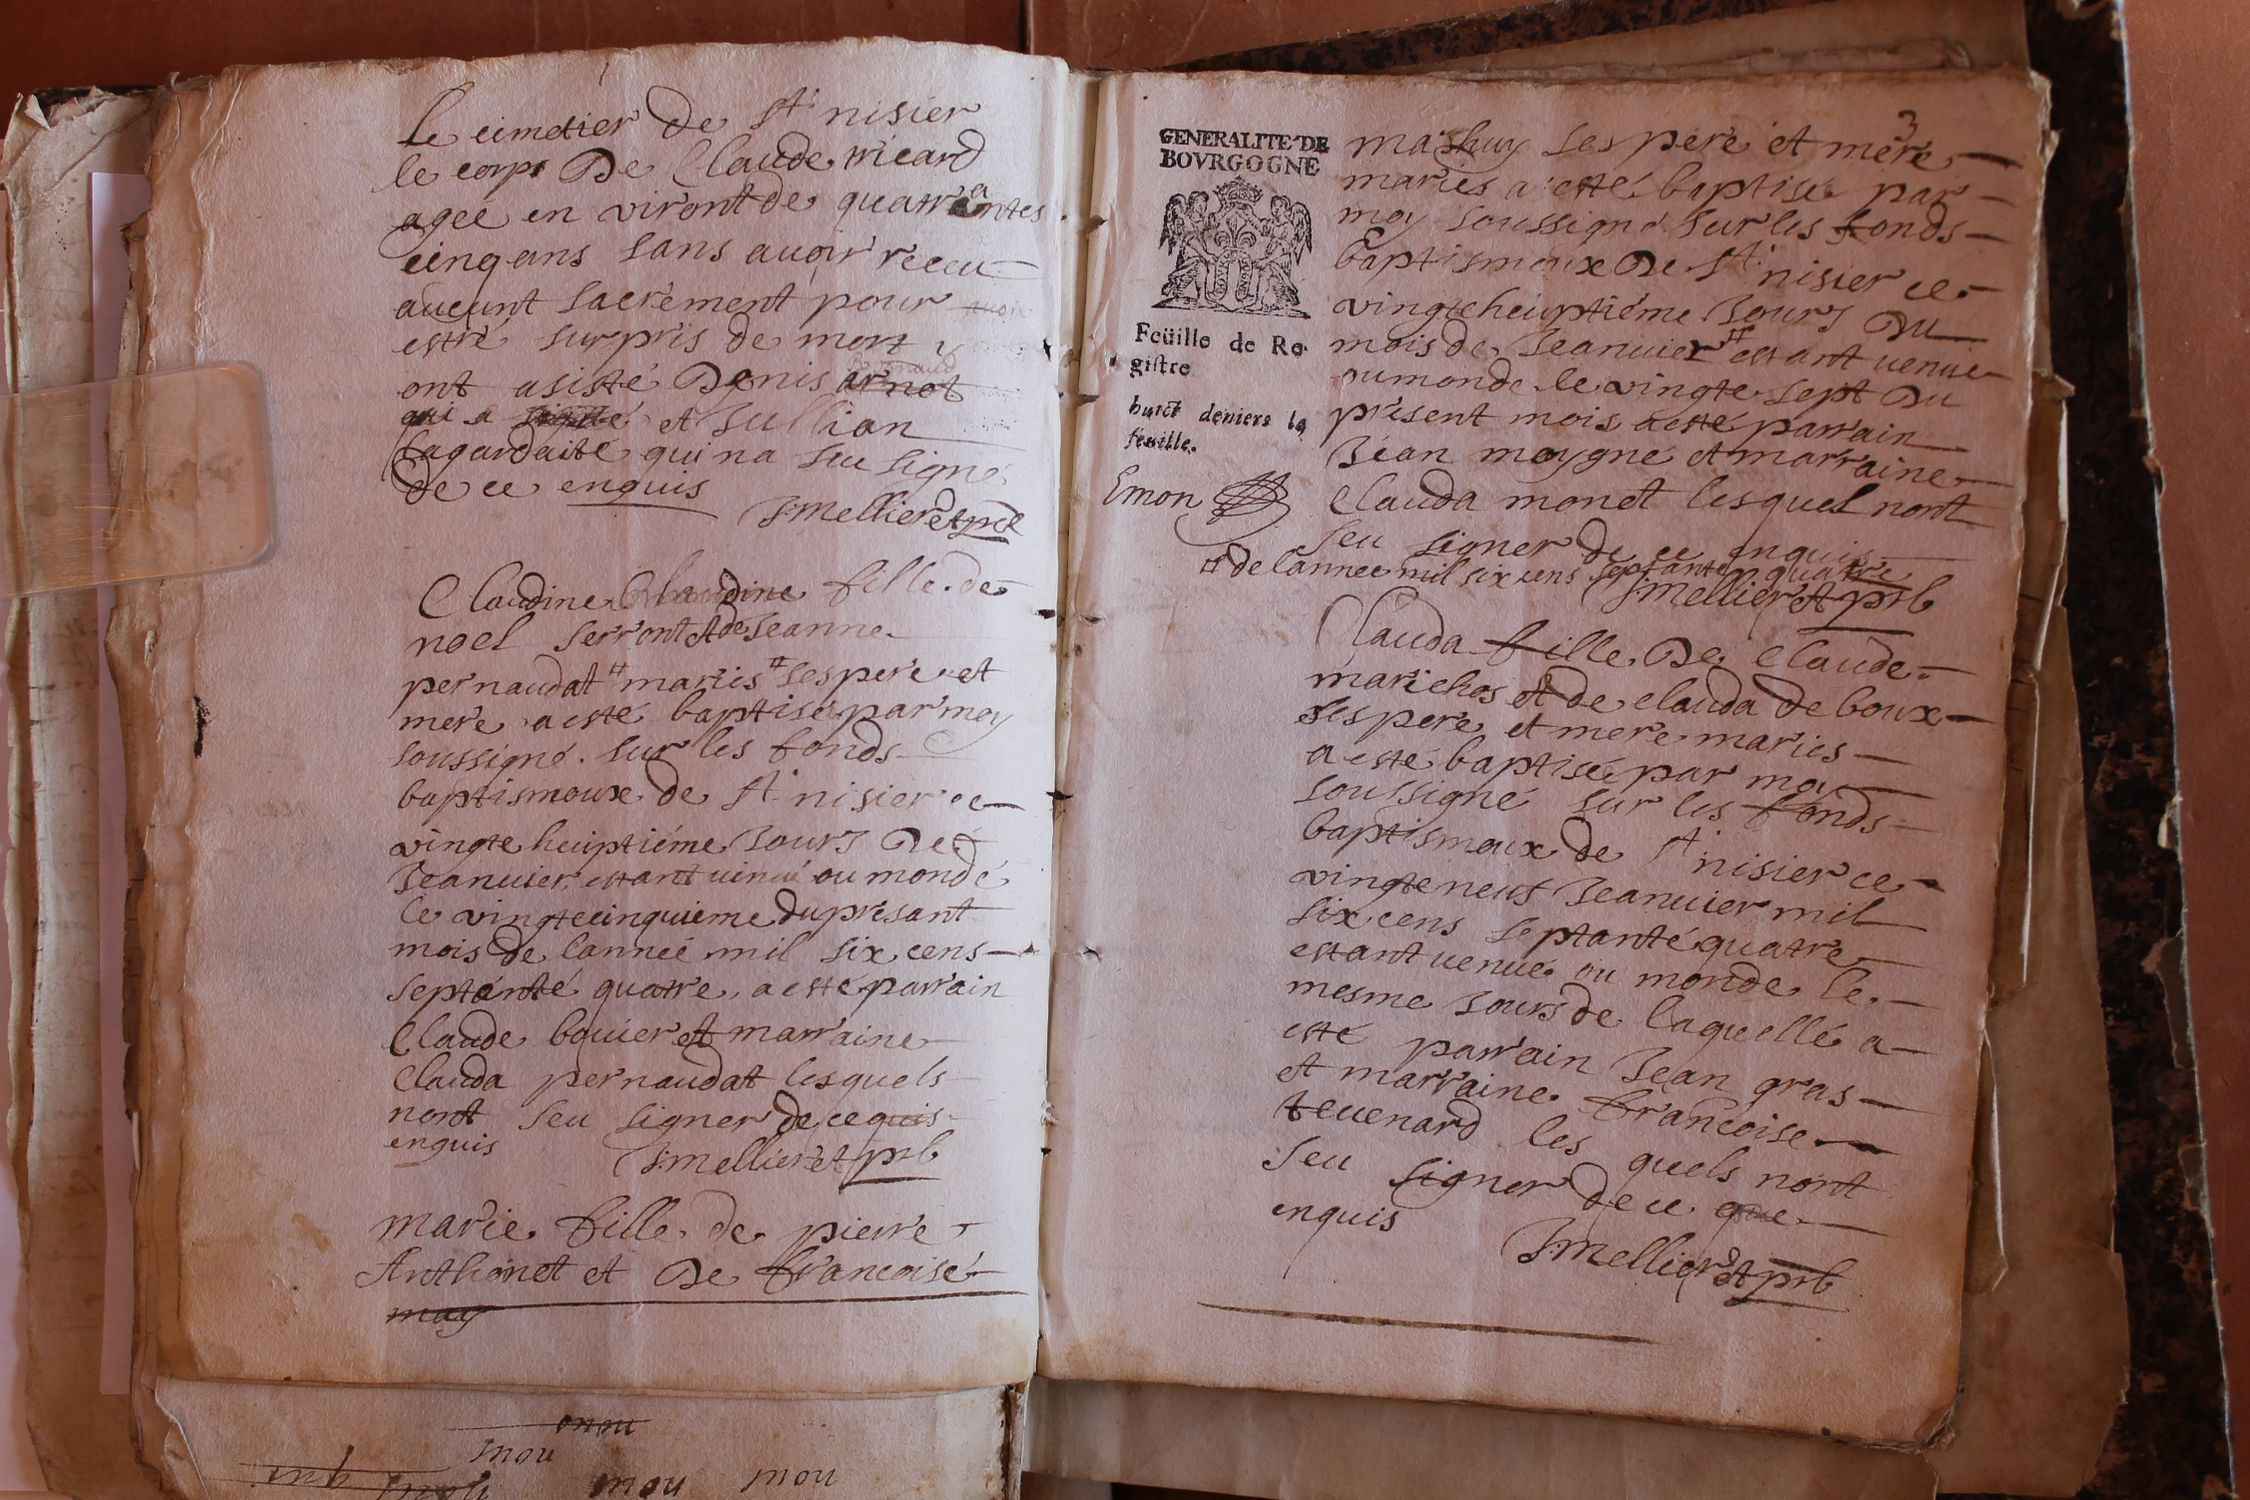 le cimetier de St nisier
le corps De Claude ricard
agee en viront de quatrantes
cinq ans sans auoir receu
aucunt sacrement pour
estre surpris de mort y
ont asisté Denis arnot
qui a signé et Jullian
lagardaite qui na sceu signé
de ce enquis
J:mellier et prb
Claudine Claudine fille de
noel serront et de Jeanne
pernaudat # mariés # ses pere et
mere a esté baptisé par moy
soussigné sur les fonds
baptismoux de St nisier ce
vingte heuptiéme Jours De
Jeanuier estant uenué ou monde
le vingtecinquieme du présant
mois de lanneé mil six cens
septanté quatre a esté parrain
Claude bouier et marraine
Clauda pernaudat lesquels
nont seu signer de ce quis
enquis
J:mellier et prb
marie fille de pierre
Anthonet et De francoise
may
onou
mou
mou mou
3
GENERALITE DE
BOVRGOGNE
Feüille de Re-
gistre
huict deniers la
feuille.
Emon
mathuy ses pere et mere
mariés a esté baptisé par
moy soussigné sur les fonds
baptismoux De St nisier ce
vingteheuptiéme Jours Du
mois de Jeanuier # estant uenue
ou monde le vingte sept Du
présent mois a esté parrain
Jéan moygne et marraine
Clauda monet lesquel nont
seu signer de ce enquis
# de lannee mil six cens septante quatre
J:mellier et prb
Clauda fille De Claude
marichos et de clauda de boux
ses pere et mere mariés
a esté baptisé par moy
soussigné sur les fonds
baptismoux de St nisier ce
vingteneuf Jeanuier mil
six cens septanté quatre
estant uenué ou monde le
mesme Jours de laquellé a
esté parrain Jean gras
et marraine francoise
teuenard les quels nont
seu signer de ce que
enquis
J:mellier et prb